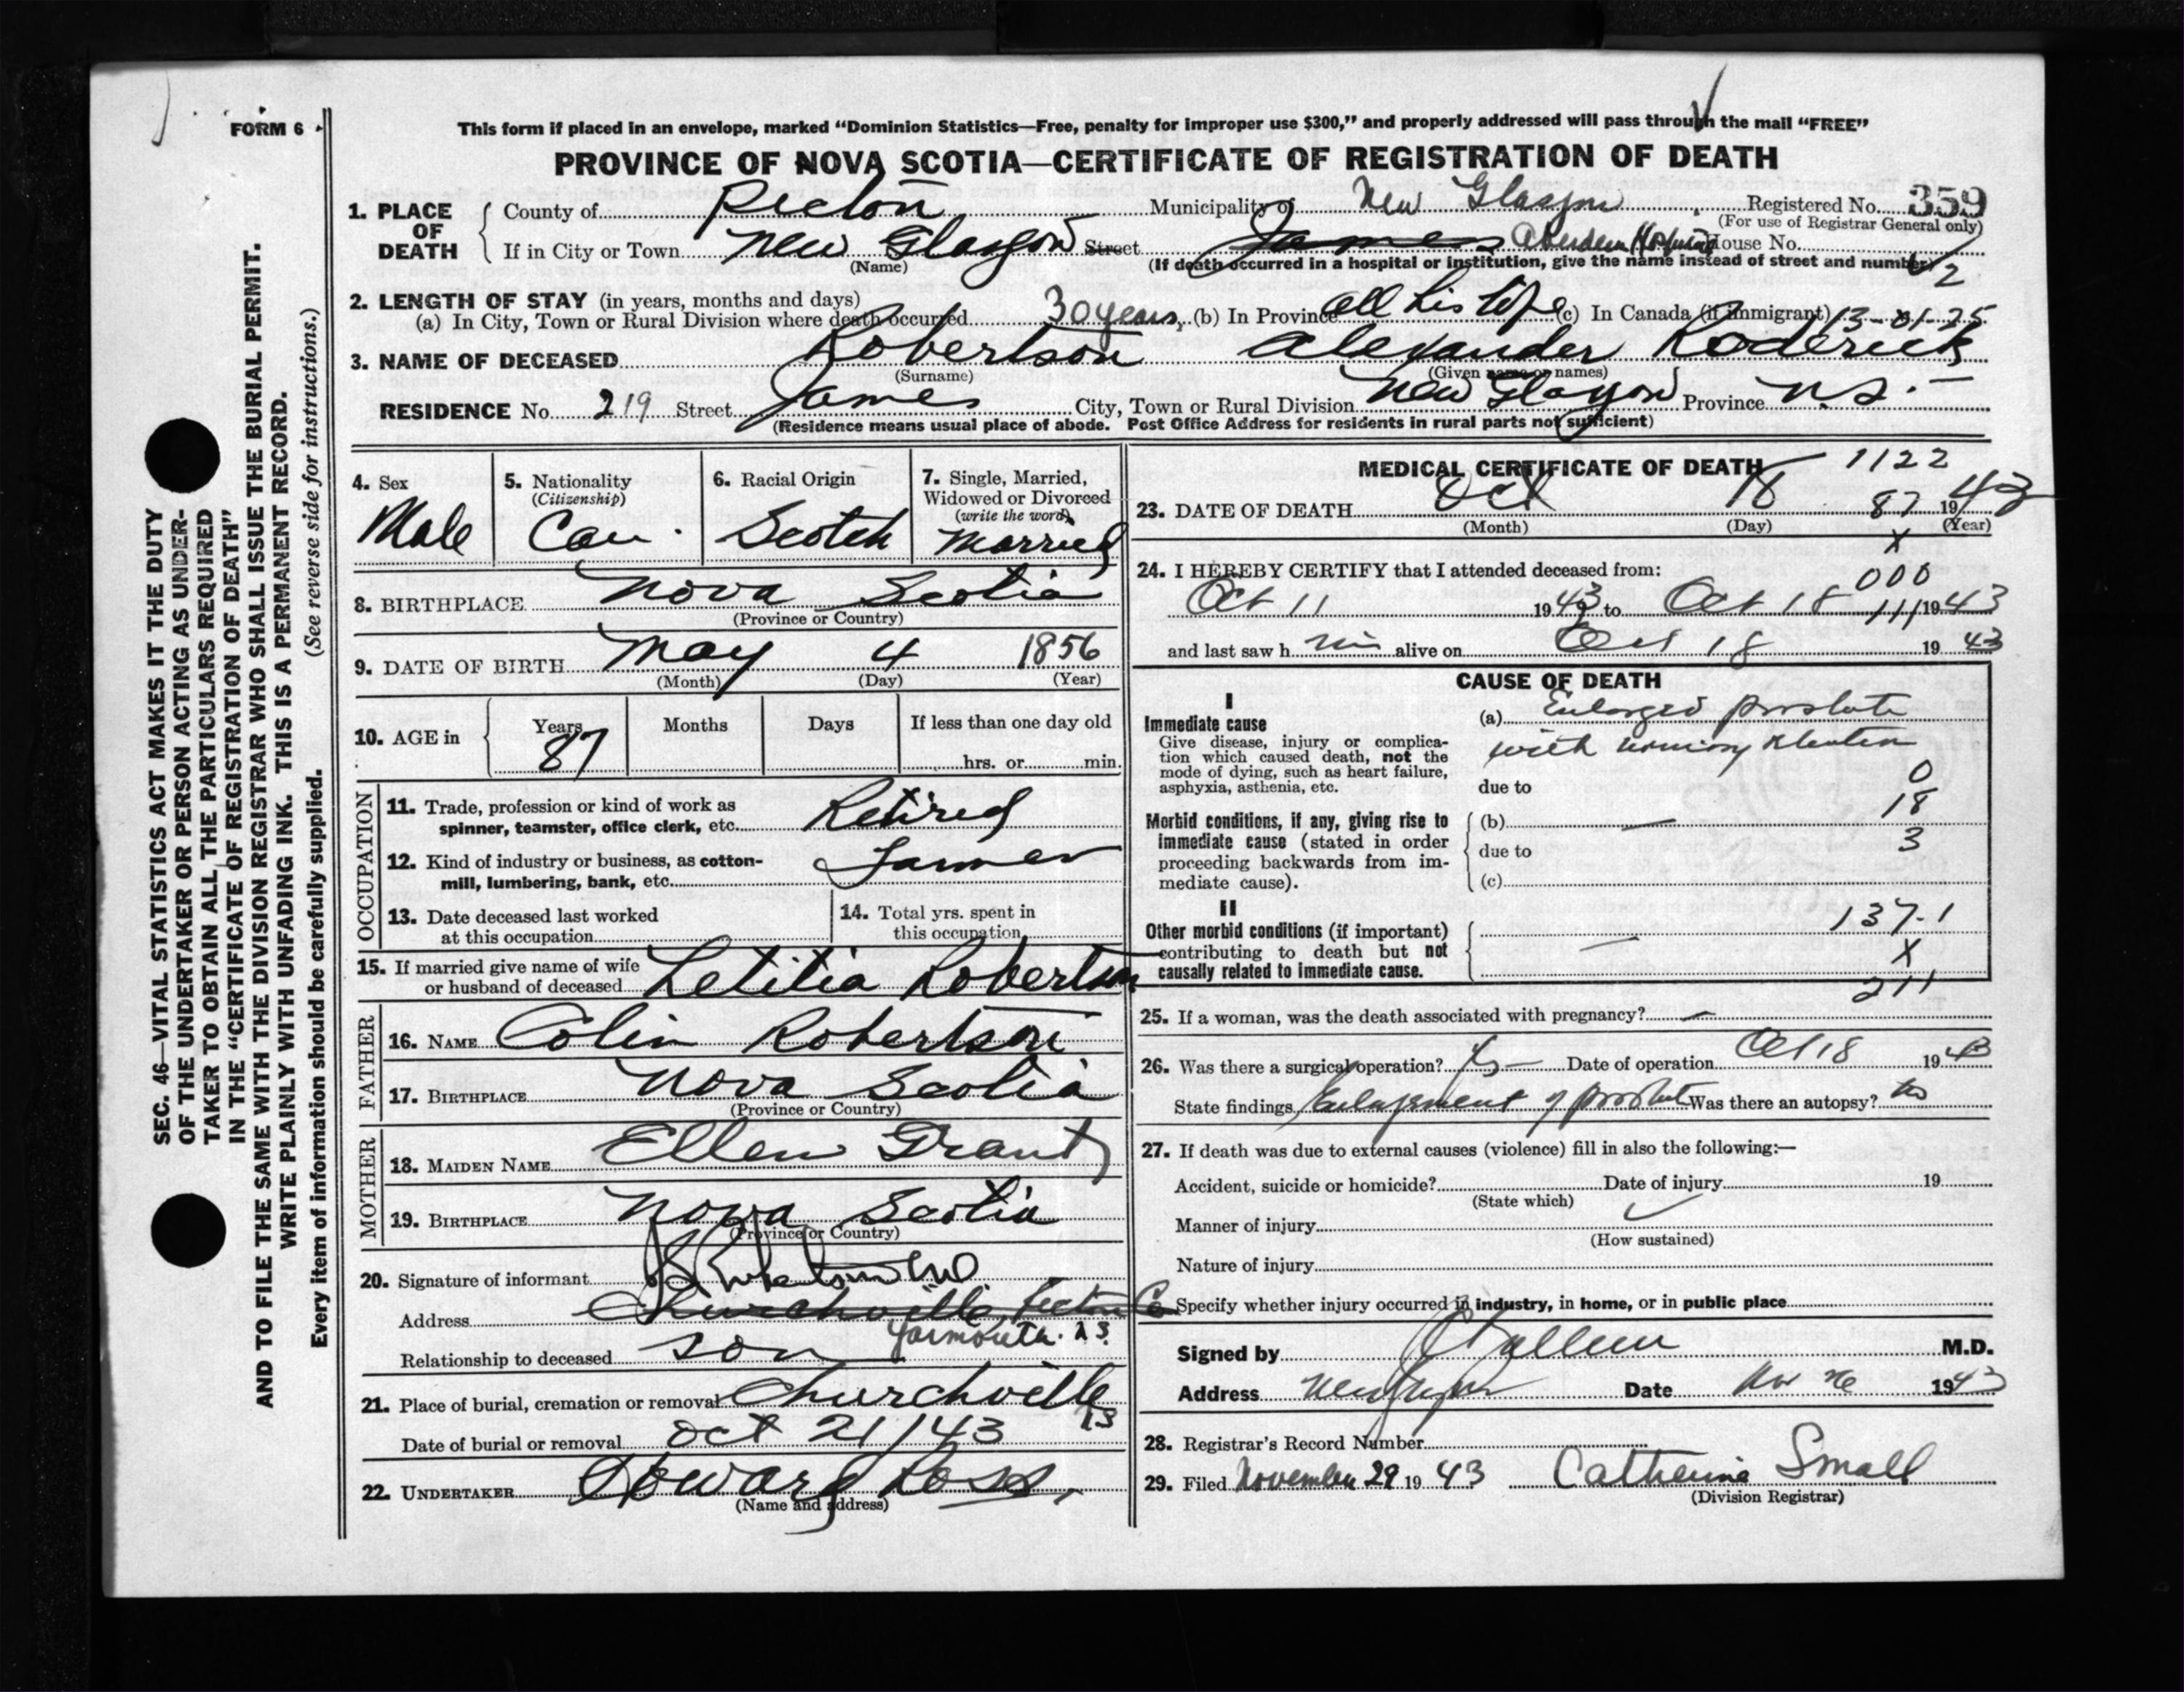 FORM 6
This form if placed in an envelope, marked “Dominion Statistics—Free, penalty for improper use $300,” and properly addressed will pass through the mail “FREE”
PROVINCE OF NOVA SCOTIA—CERTIFICATE OF REGISTRATION OF DEATH
1. PLACE OF DEATH { County of Pictou Municipality of New Glasgow Registered No. 359
(For use of Registrar General only)
If in City or Town New Glasgow Street James Aberdeen Hospital House No.
(Name) (If death occurred in a hospital or institution, give the name instead of street and number)
2
2. LENGTH OF STAY (in years, months and days)
(a) In City, Town or Rural Division where death occurred 30 years, (b) In Province all his life (c) In Canada (if immigrant) 13-01-25
3. NAME OF DECEASED Robertson Alexander Roderick
(Surname) (Given name or names)
RESIDENCE No. 219 Street James City, Town or Rural Division New Glasgow Province N.S.
(Residence means usual place of abode. Post Office Address for residents in rural parts not sufficient)
4. Sex Male
5. Nationality (Citizenship) Can.
6. Racial Origin Scotch
7. Single, Married, Widowed or Divorced (write the word) Married
8. BIRTHPLACE Nova Scotia
(Province or Country)
9. DATE OF BIRTH May 4 1856
(Month) (Day) (Year)
10. AGE in { Years 87 Months Days If less than one day old
hrs. or min.
OCCUPATION
11. Trade, profession or kind of work as
spinner, teamster, office clerk, etc. Retired
12. Kind of industry or business, as cotton-
mill, lumbering, bank, etc. Farmer
13. Date deceased last worked
at this occupation
14. Total yrs. spent in
this occupation
15. If married give name of wife
or husband of deceased Letitia Robertson
FATHER
16. NAME Colin Robertson
17. BIRTHPLACE Nova Scotia
(Province or Country)
MOTHER
18. MAIDEN NAME Ellen Grant
19. BIRTHPLACE Nova Scotia
(Province or Country)
20. Signature of informant
Address Churchville, Pictou Co
Yarmouth. NS
Relationship to deceased son
21. Place of burial, cremation or removal Churchville
NS
Date of burial or removal Oct 21/43
22. UNDERTAKER Howard Ross,
(Name and address)
MEDICAL CERTIFICATE OF DEATH 1122
23. DATE OF DEATH Oct 18 87 1943
(Month) (Day) (Year)
X
24. I HEREBY CERTIFY that I attended deceased from:
000
Oct 11 1943 to Oct 18 111 1943
and last saw him alive on Oct 18 1943
CAUSE OF DEATH
I
Immediate cause
Give disease, injury or complica-
tion which caused death, not the
mode of dying, such as heart failure,
asphyxia, asthenia, etc.
(a) Enlarged prostate
with urinary retention
0
due to
18
Morbid conditions, if any, giving rise to
immediate cause (stated in order
proceeding backwards from im-
mediate cause).
(b) —
3
due to
(c)
II
Other morbid conditions (if important)
contributing to death but not
causally related to immediate cause.
137-1
— X
211
25. If a woman, was the death associated with pregnancy? —
26. Was there a surgical operation? Yes Date of operation Oct 18 1943
State findings Enlargement of prostate Was there an autopsy? No
27. If death was due to external causes (violence) fill in also the following:—
Accident, suicide or homicide? Date of injury 19
(State which)
Manner of injury
(How sustained)
Nature of injury
Specify whether injury occurred in industry, in home, or in public place
Signed by M.D.
Address New Glasgow Date Nov 26 1943
28. Registrar's Record Number
29. Filed November 29 1943 Catherine Small
(Division Registrar)
SEC. 46—VITAL STATISTICS ACT MAKES IT THE DUTY
OF THE UNDERTAKER OR PERSON ACTING AS UNDER-
TAKER TO OBTAIN ALL THE PARTICULARS REQUIRED
IN THE “CERTIFICATE OF REGISTRATION OF DEATH”
AND TO FILE THE SAME WITH THE DIVISION REGISTRAR WHO SHALL ISSUE THE BURIAL PERMIT.
WRITE PLAINLY WITH UNFADING INK. THIS IS A PERMANENT RECORD.
Every item of information should be carefully supplied. (See reverse side for instructions.)